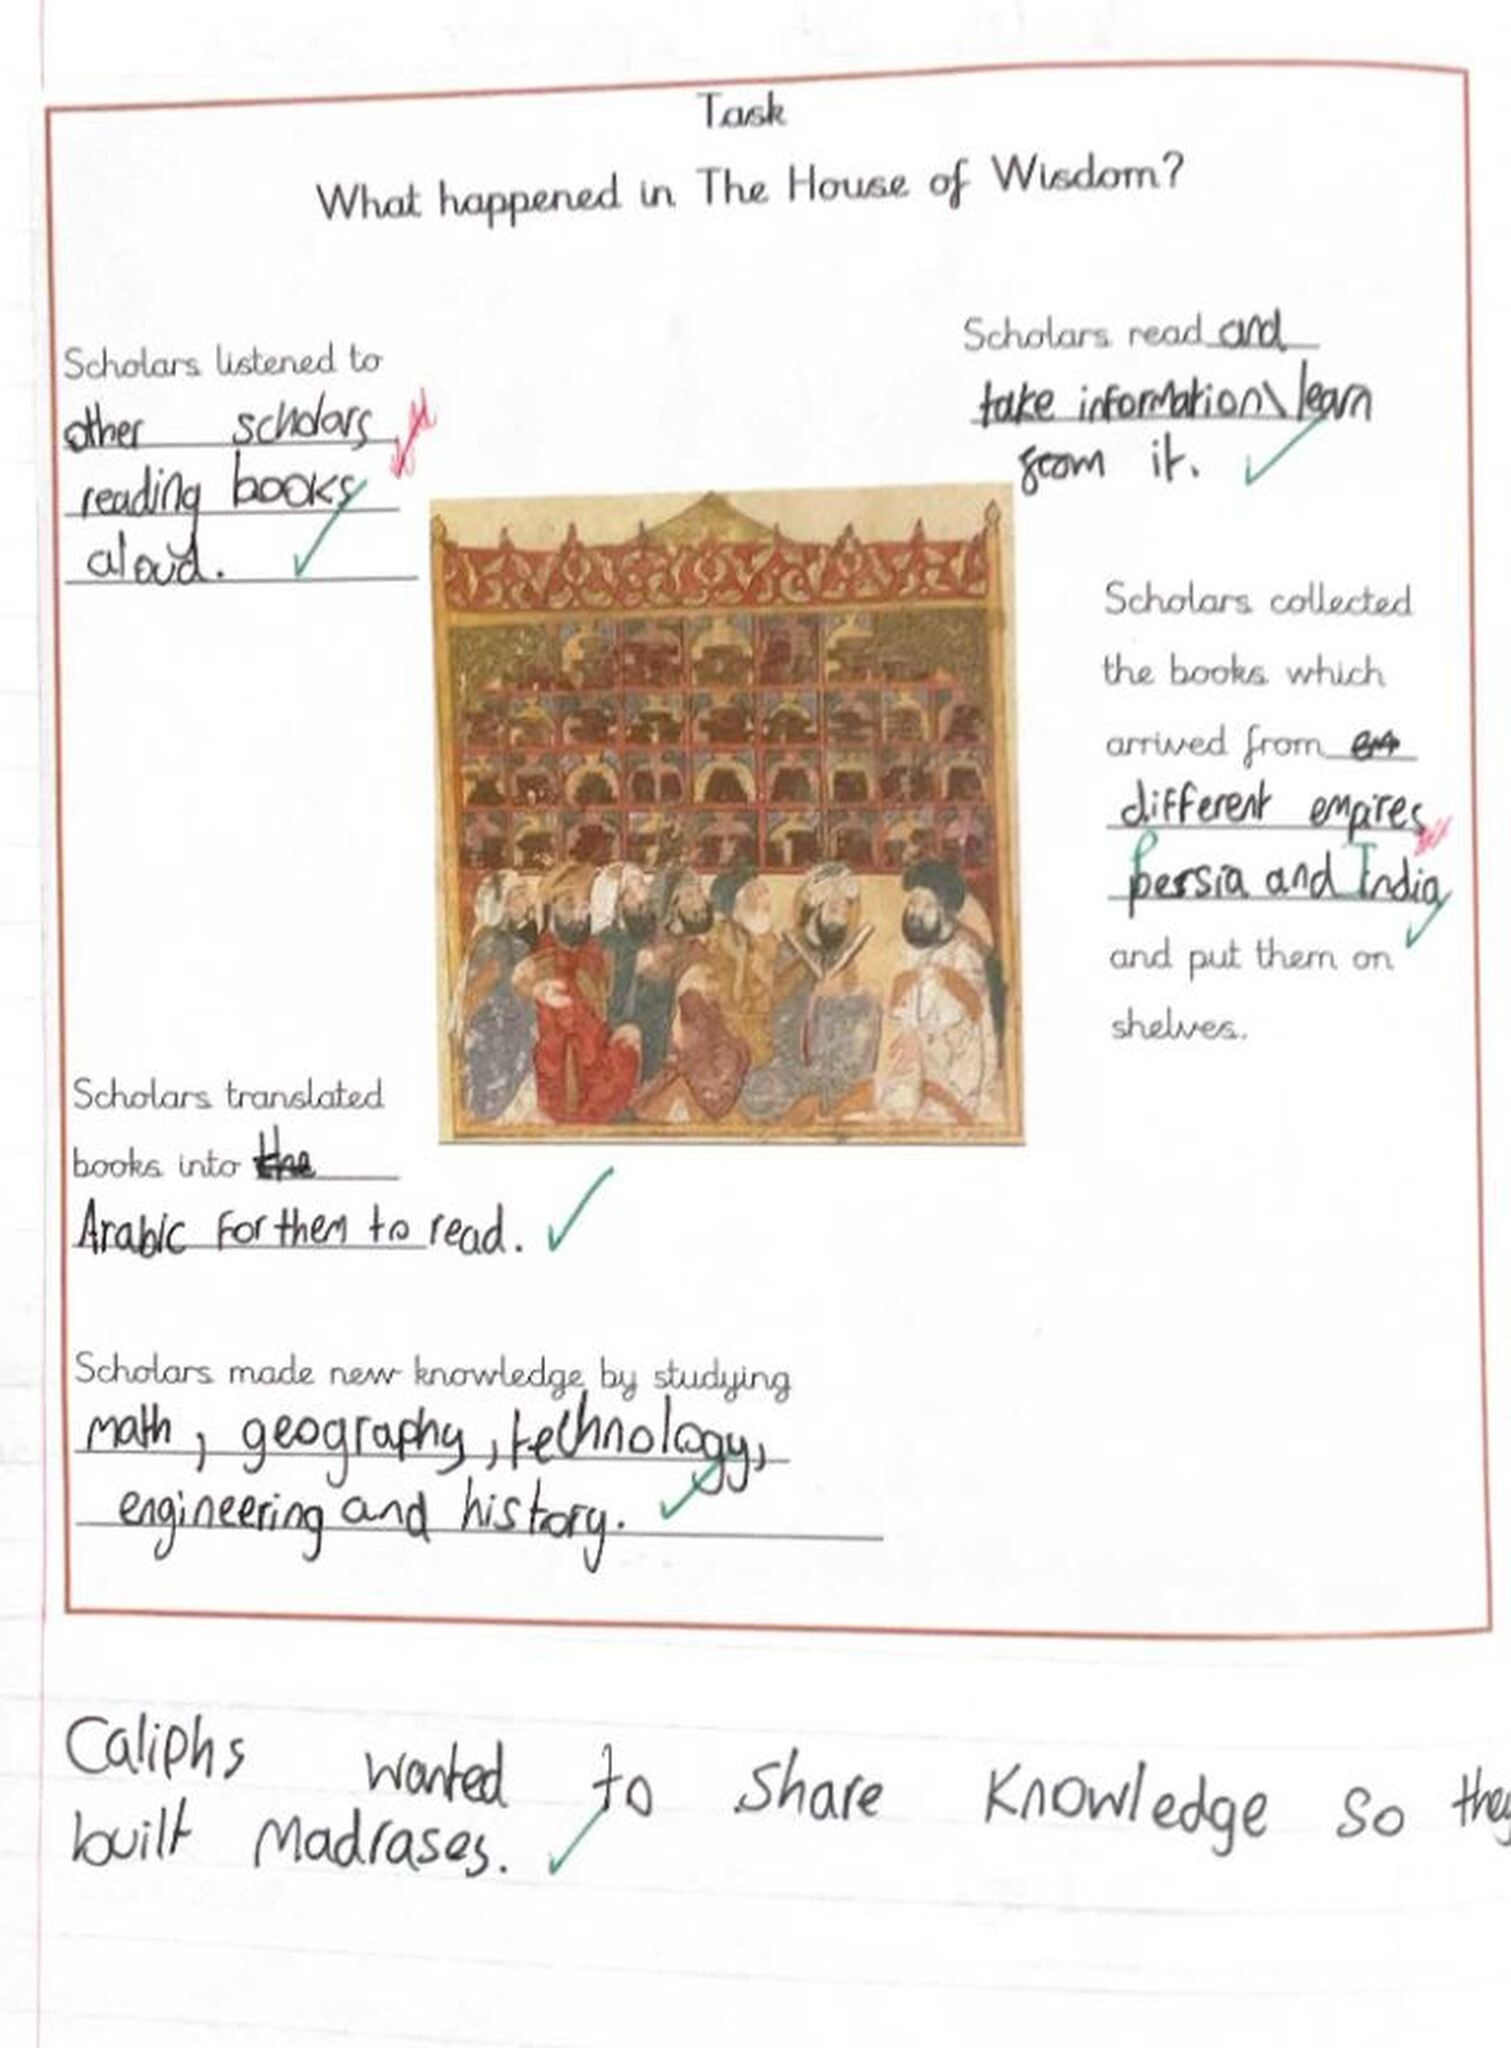 Task
What happened in The House of Wisdom?
Scholars listened to
other scholars
reading books
aloud.
Scholars read and
take information\ learn
from it.
Scholars collected
the books which
arrived from
different empires
Persia and India
and put them on
shelves.
Scholars translated
books into the
Arabic for them to read.
Scholars made new knowledge by studying
math, geography, technology,
engineering and history.
Caliphs wanted to share knowledge so they
built Madrases.